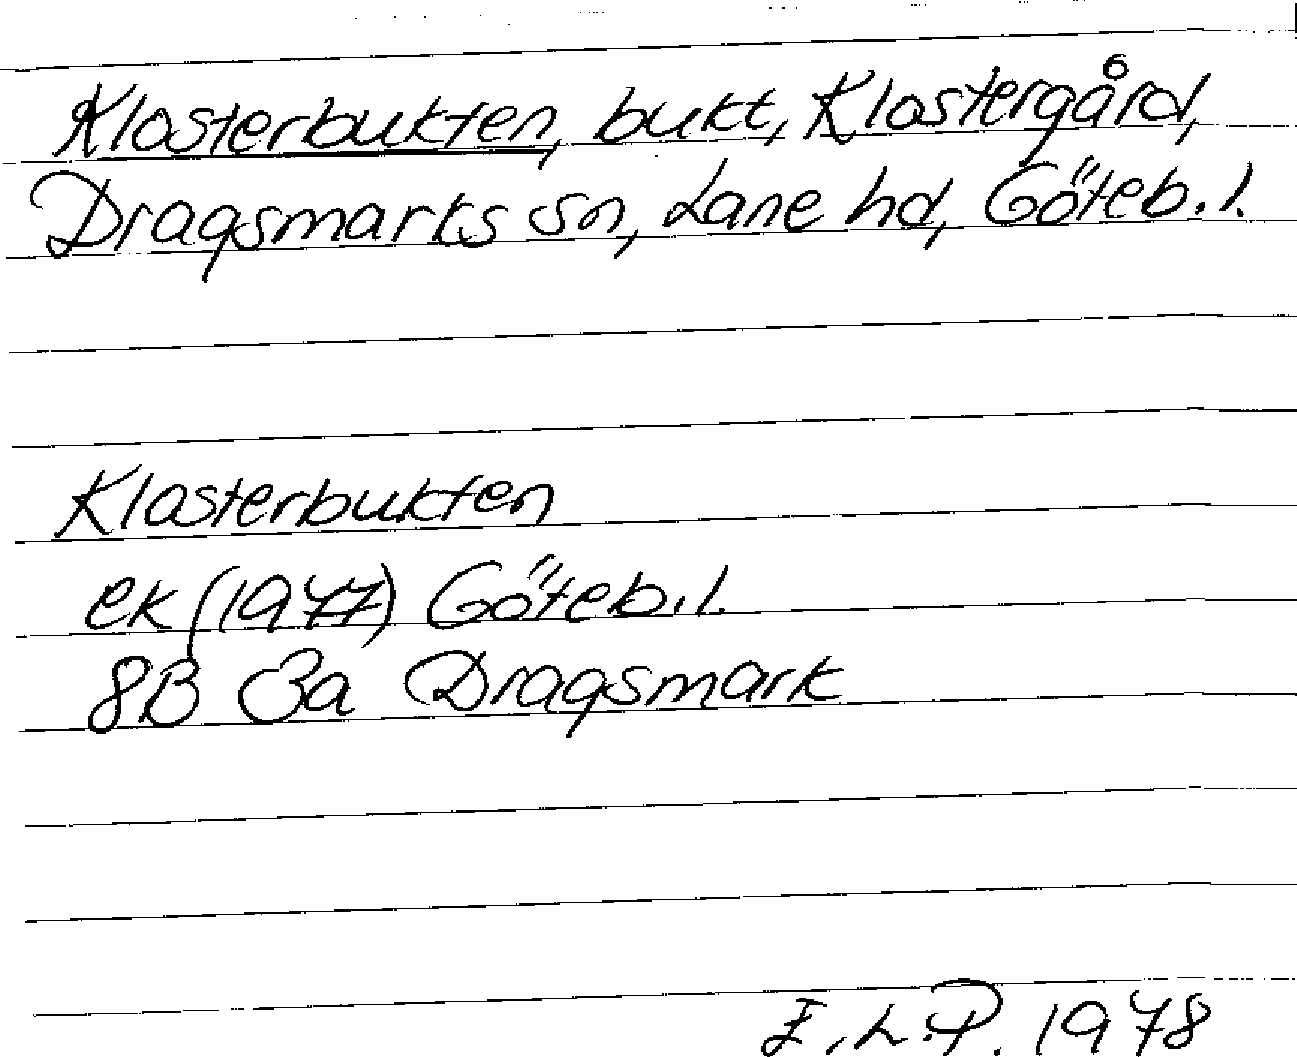 Klosterbukten, bukt, Klostergård,
Dragsmarks sn, Lane hd, Göteb. l.
Klosterbukten
ek (1977) Göteb. l.
8B 3a Dragsmark
I. L. P. 1978